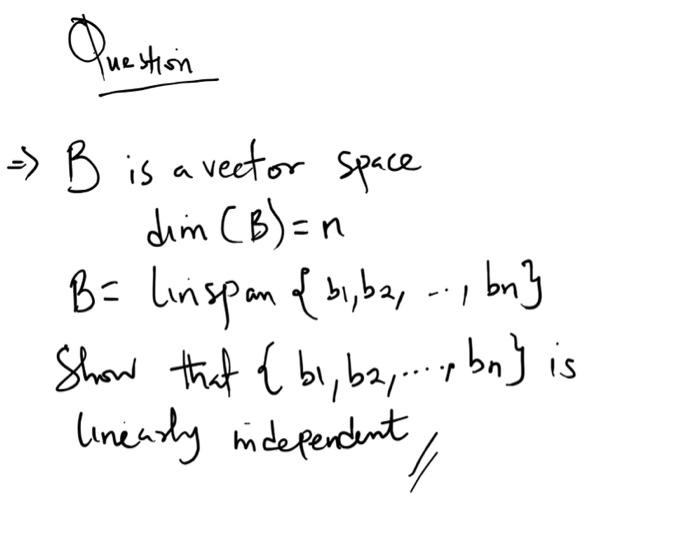 Question
=> B is a vector space
dim (B) = n
B = linspan { b1, b2, ..., bn }
Show that { b1, b2, ...., bn } is
linearly independent //